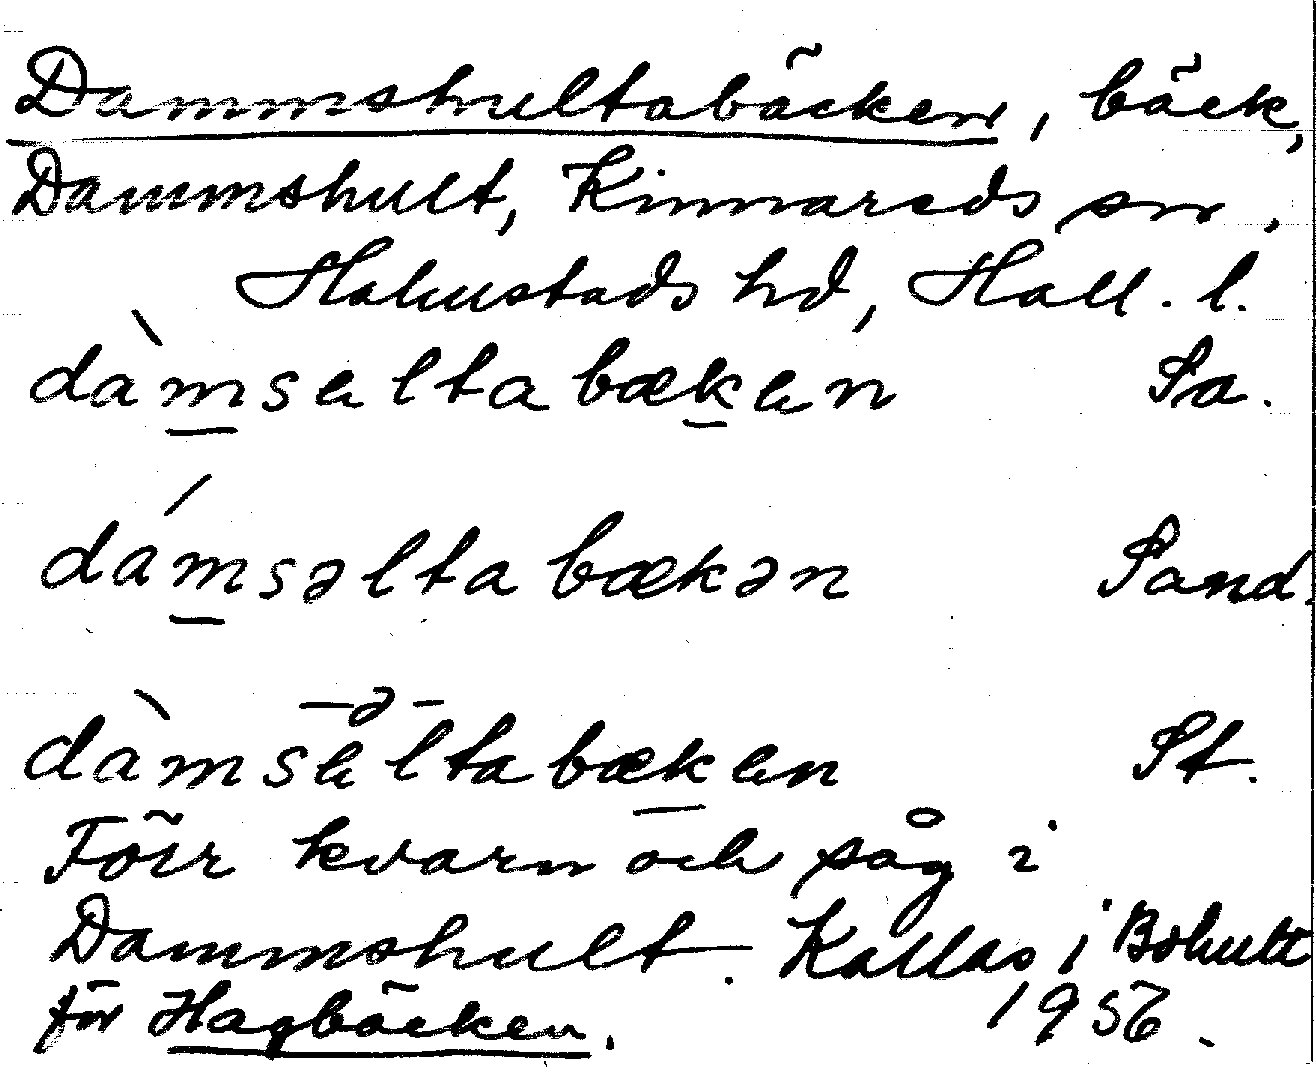 Dammshultabäcken, bäck,
Dammshult, Kinnareds sn,
Halmstads hd, Hall. l.
dàmsaltabækan Sa.
dámsəltabækən Sand.
dàmsaltabækan St.
–ə–
Förr kvarn och såg i
Dammshult. Kallas i Bohult
för Hagbäcken. 1956.